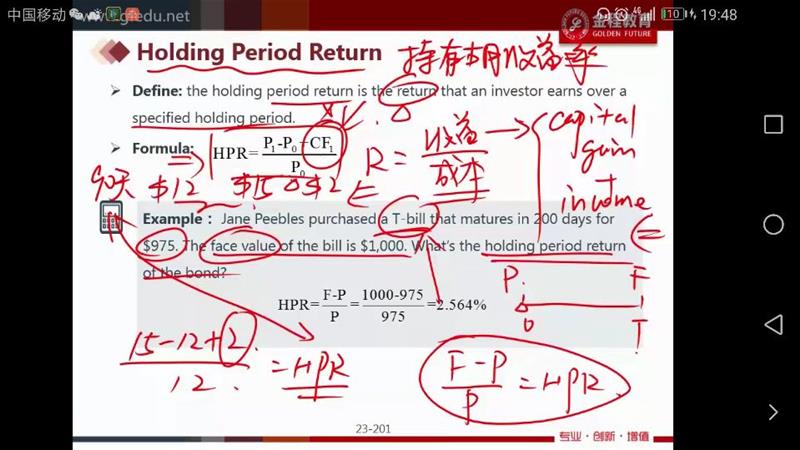 中国移动 www.zgjedu.net 4G 110 19:48
Holding Period Return
持有期收益率
金程教育
GOLDEN FUTURE
Define: the holding period return is the return that an investor earns over a
specified holding period.
Formula: HPR= P1-P0+CF1 / P0
R = 收益 / 成本
capital
gain
+
income
90天 $12 $15 $2
Example : Jane Peebles purchased a T-bill that matures in 200 days for
$975. The face value of the bill is $1,000. What's the holding period return
of the bond?
HPR= F-P / P = 1000-975 / 975 =2.564%
P F
0 T
15-12+2 / 12 = HPR
F-P / P = HPR
23-201
专业·创新·增值